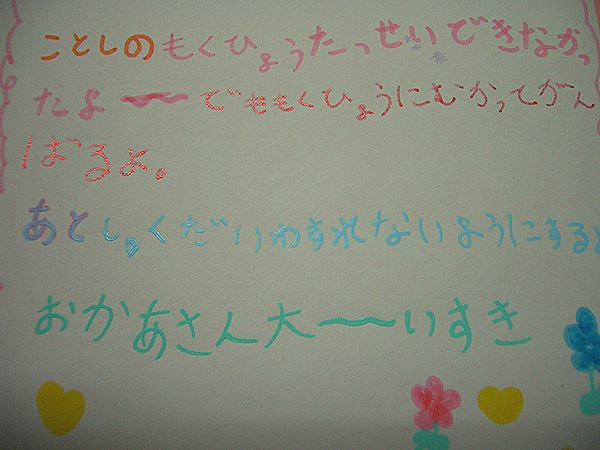 ことしのもくひょうたっせいできなかっ
たよ〜〜でももくひょうにむかってがん
ばるよ。
あとしゅくだいわすれないようにするよ
おかあさん大〜〜いすき